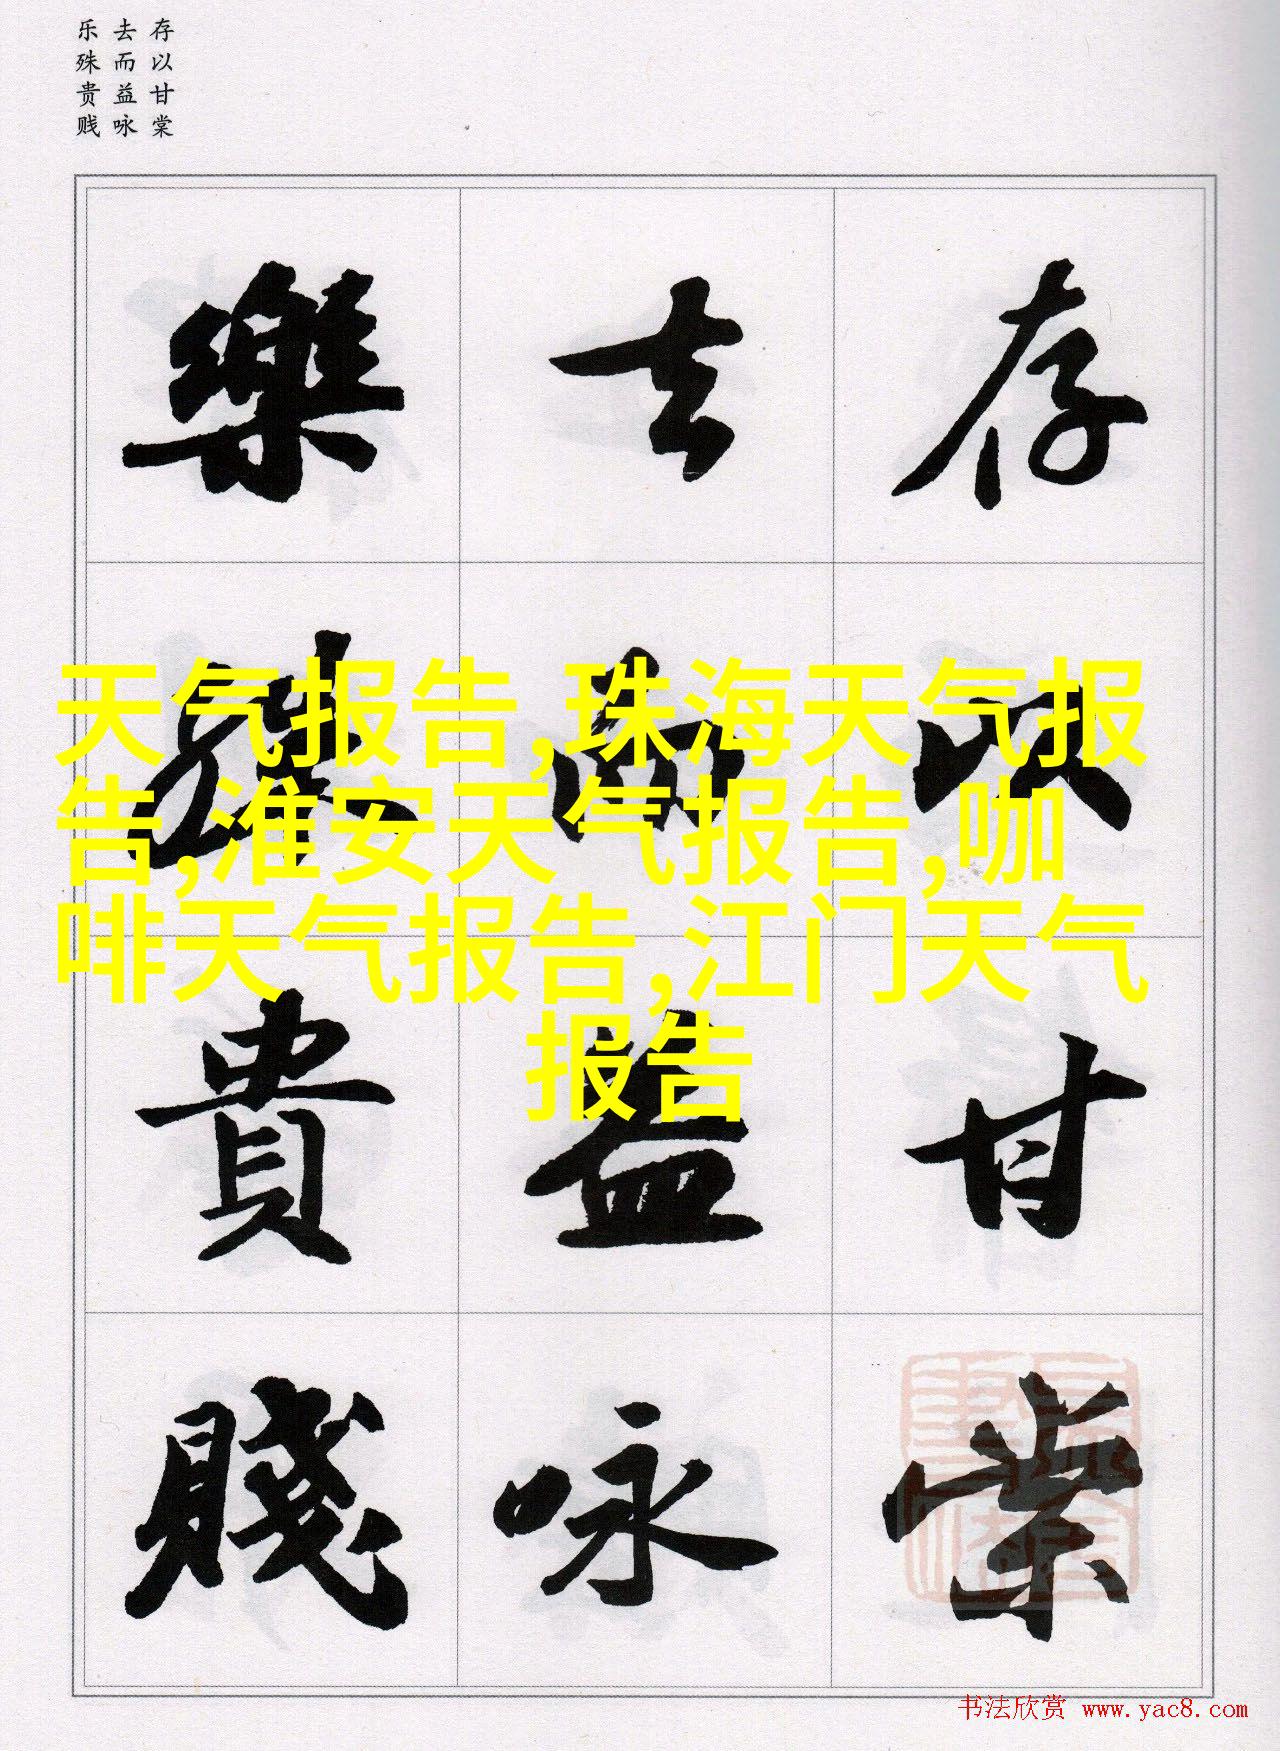 存以甘棠
去而益咏
乐殊贵贱
存以甘棠
去而益咏
樂殊貴賤
天气报告,珠海天气报
告,淮安天气报告,咖
啡天气报告,江门天气
报告
书法欣赏 www.yac8.com